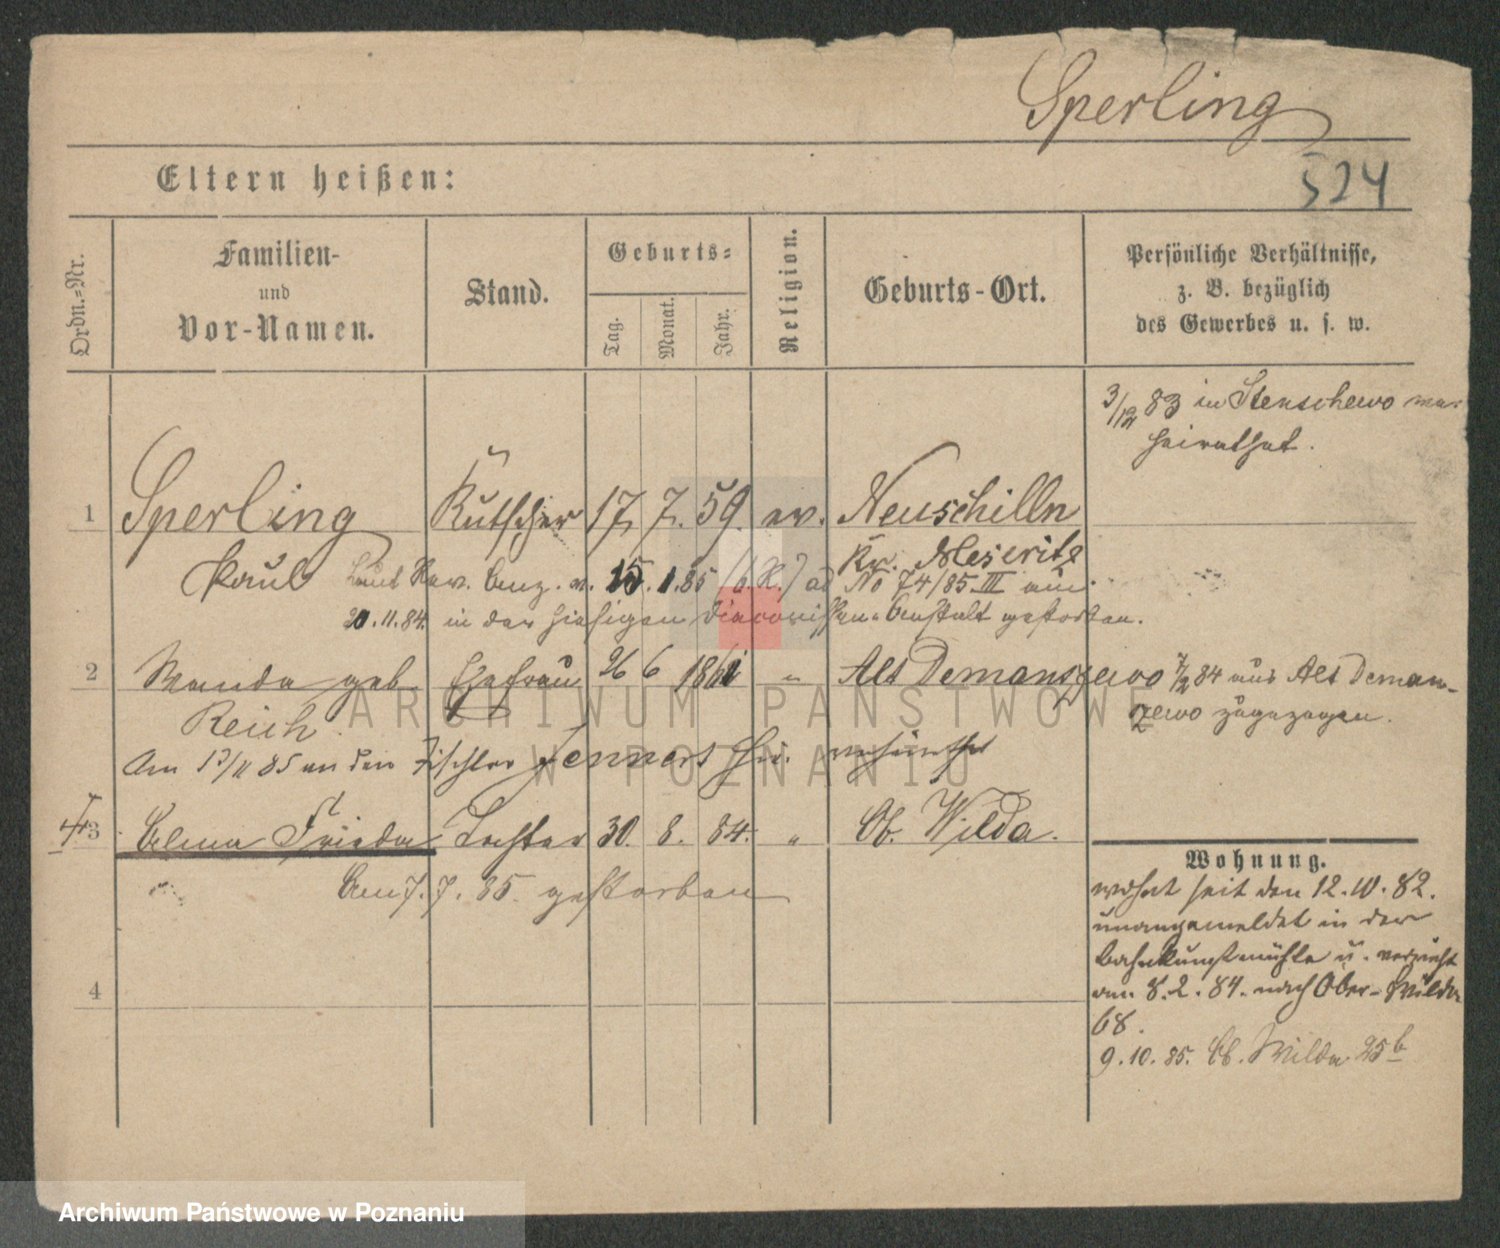 Sperling
524
Eltern heißen:
Ordn.-Nr.
Familien-
und
Vor-Namen.
Stand.
Geburts-
Tag.
Monat.
Jahr.
Religion.
Geburts-Ort.
Persönliche Verhältnisse,
z. B. bezüglich
des Gewerbes u. s. w.
3/12 83 in Stenschewo ver
heirathet.
1 Sperling Kutscher 17 7. 59. ev. Neuschilln
Kr. Meseritz
Paul Laut Rev. Anz. v. 15.1.85 ad No 74/85 III am
20.11.84. in der hiesigen Diaconissen-Anstalt gestorben.
2 Wanda geb. Ehefrau 26 6 1861 " Alt Demanczewo 7/2 84 aus Alt Deman-
czewo zugezogen.
Reich.
Am 17/11 85 an den Tischler verheirathet
3 Alma Frieda Tochter 30. 8. 84. " Ob. Wilda.
Am 7. 7. 85 gestorben
4
Wohnung.
wohnt seit den 12.10.82.
unangemeldet in der
Bahnkunstmühle u. verzieht
am 8.2.84. nach Ober-Wilda
68.
9.10.85. Ob. Wilda 25b
ARCHIWUM PAŃSTWOWE
W POZNANIU
Archiwum Państwowe w Poznaniu